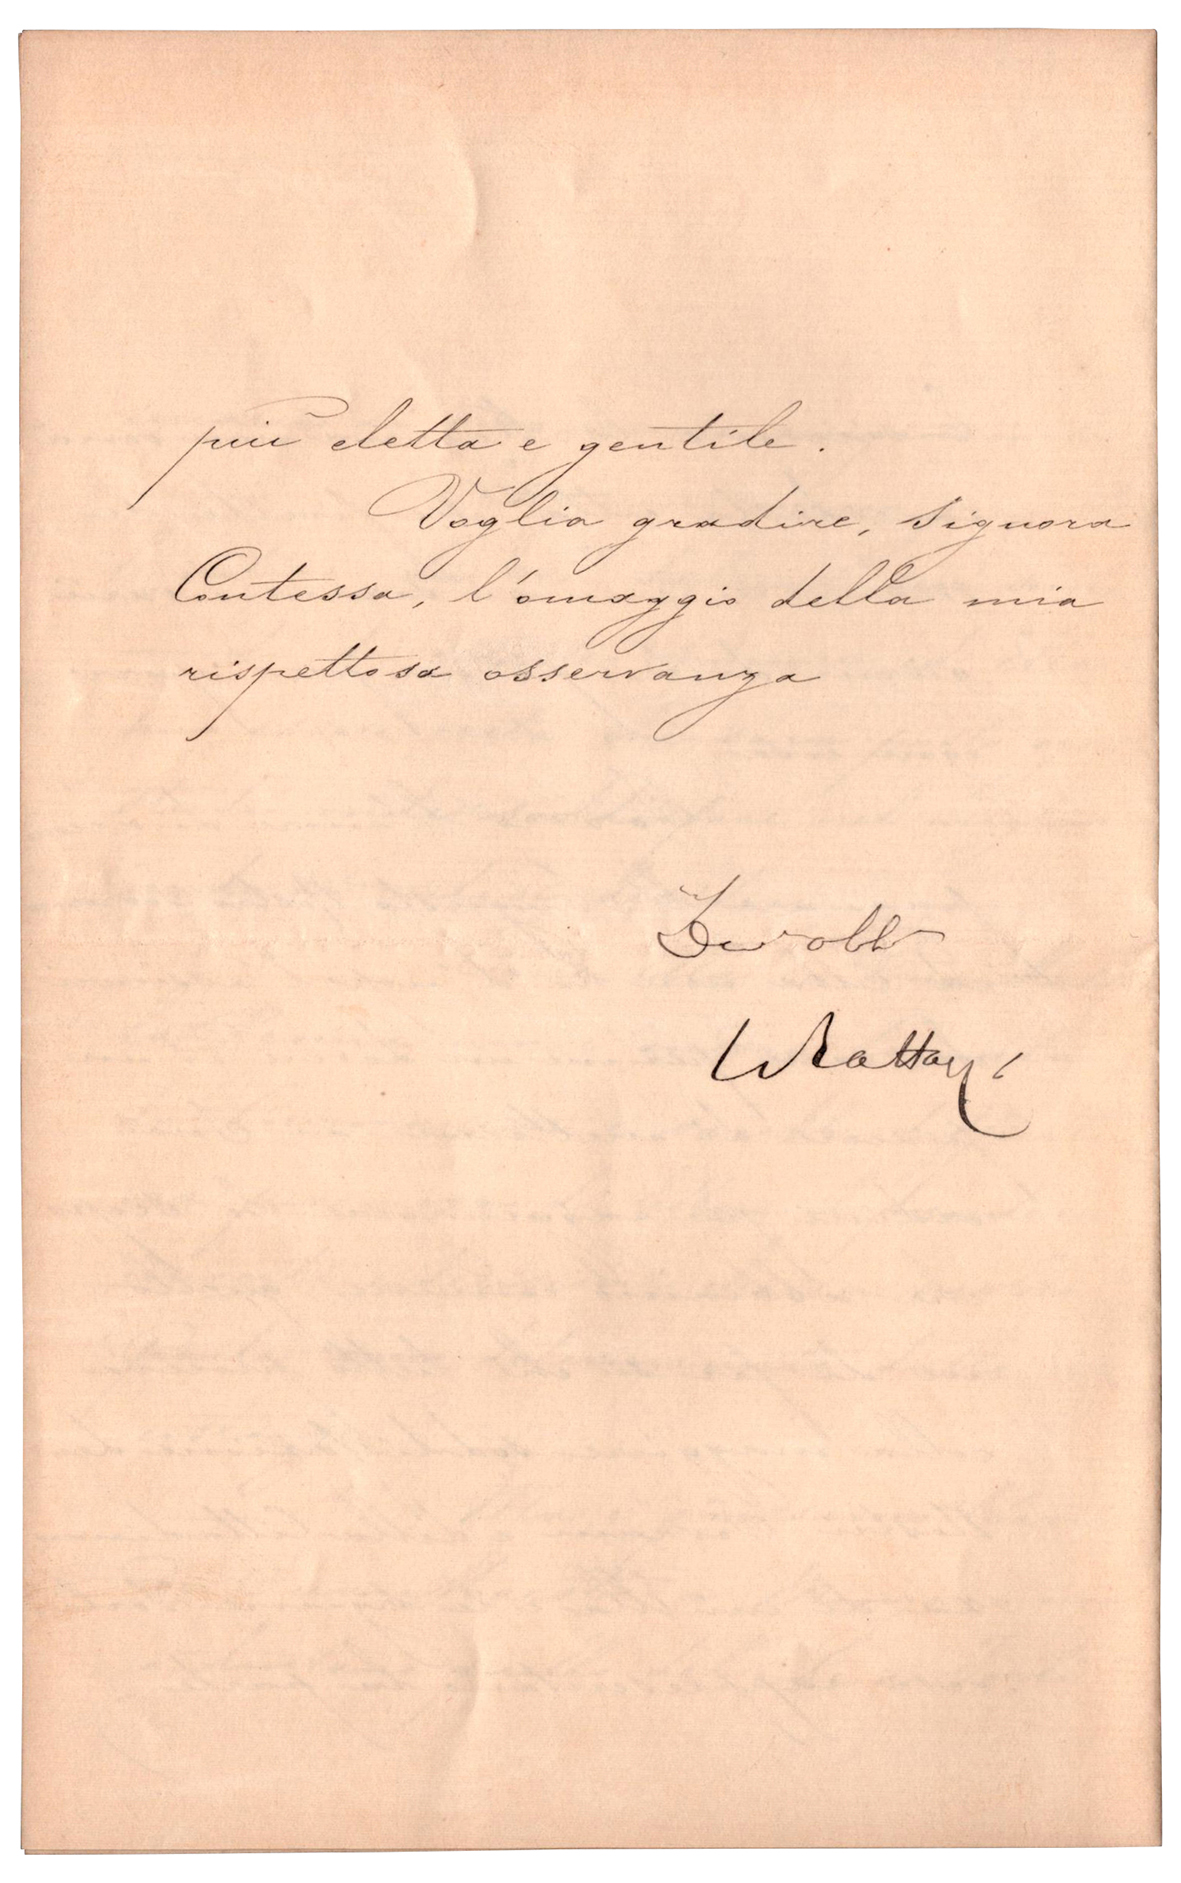 più eletta e gentile.
Voglia gradire, Signora
Contessa, l'omaggio della mia
rispettosa osservanza
Dev obb